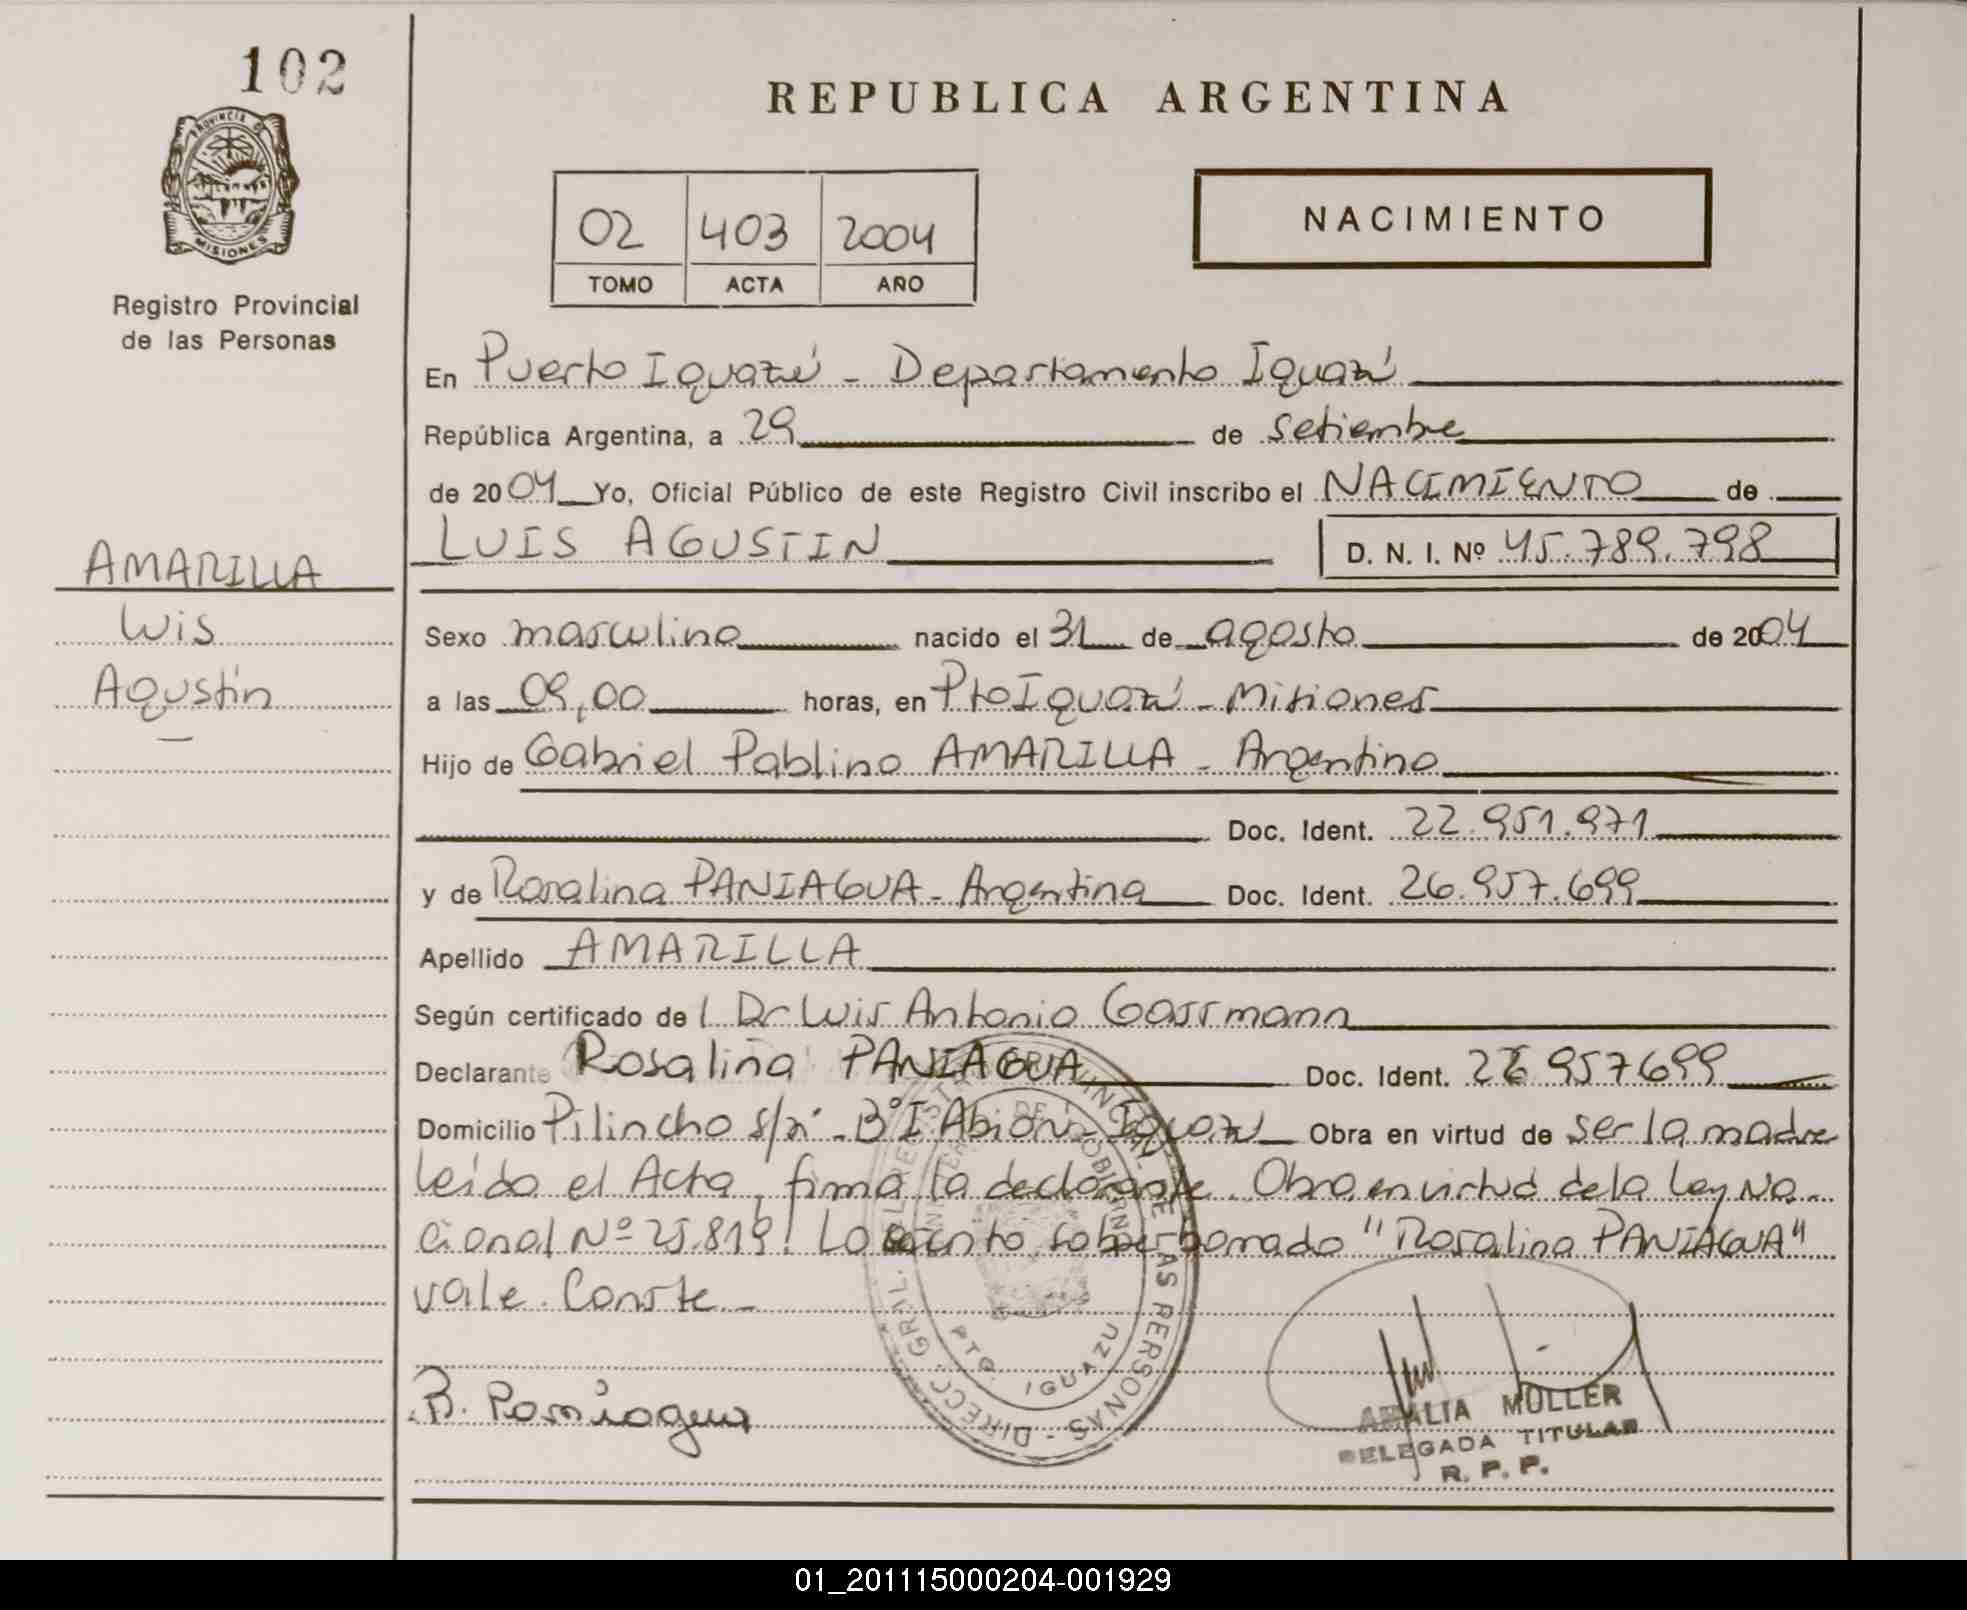 102
PROVINCIA DE
MISIONES
Registro Provincial
de las Personas
AMARILLA
Luis
Agustín
REPUBLICA ARGENTINA
02 403 2004
TOMO ACTA AÑO
NACIMIENTO
En Puerto Iguazú - Departamento Iguazú
República Argentina, a 29 de setiembre
de 2004 Yo, Oficial Público de este Registro Civil inscribo el NACIMIENTO de
LUIS AGUSTIN D. N. I. Nº 45.789.798
Sexo masculino nacido el 31 de agosto de 2004
a las 09,00 horas, en Pto Iguazú - Misiones
Hijo de Gabriel Pablino AMARILLA - Argentino
Doc. Ident. 22.951.971
y de Rosalina PANIAGUA - Argentina Doc. Ident. 26.957.699
Apellido AMARILLA
Según certificado de l Dr Luis Antonio Gassmann
Declarante Rosalina PANIAGUA Doc. Ident. 26 957699
Domicilio Pilincho s/n - Bº I Iguazú Obra en virtud de ser la madre
leída el Acta, firma la declarante. Obra en virtud de la Ley Na-
cional Nº 25.819! Lo escrito sobre borrado "Rosalina PANIAGUA"
vale. Conste -
R. Paniagua
DIRECC. GRAL. DEL REGISTRO PROVINCIAL DE LAS PERSONAS
PTO. IGUAZU
AMALIA MULLER
DELEGADA TITULAR
R. P. P.
01_201115000204-001929